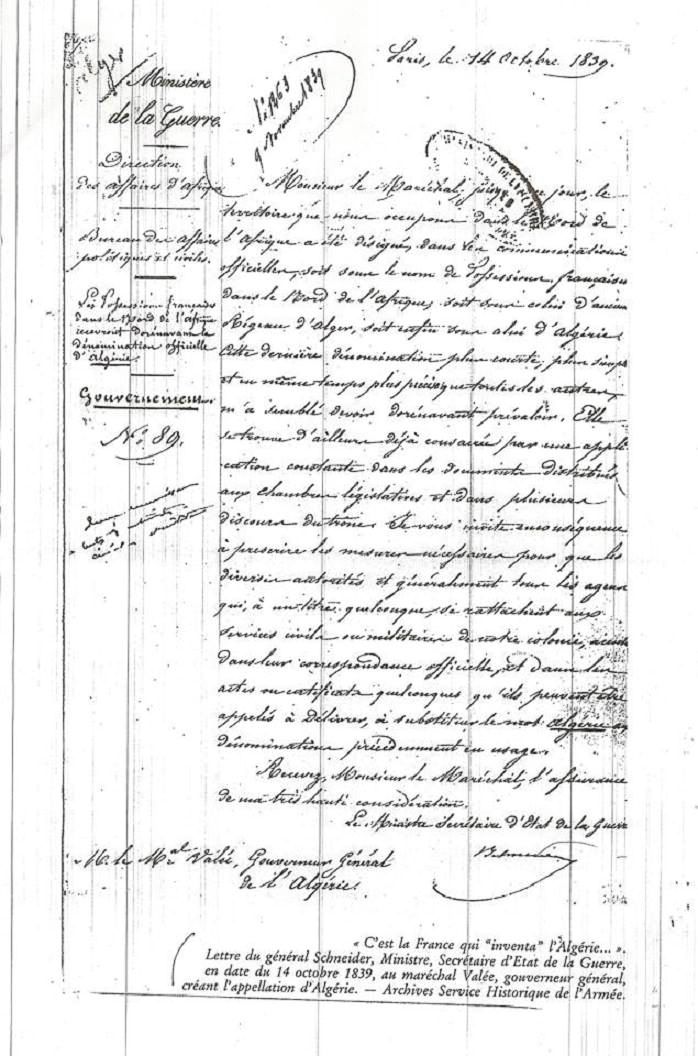 Paris, le 14 Octobre 1839.
Ministère
de la Guerre.
N° 1863
9 Novembre 1839
Direction
des affaires d'Afrique
Bureau des affaires
politiques et civiles.
Les Possessions françaises
dans le Nord de l'Afrique
recevront dorénavant la
dénomination officielle
d'Algérie.
Gouvernement
N° 89.
Monsieur le Maréchal, jusqu'à ce jour, le
territoire que nous occupons dans le Nord de
l'Afrique a été désigné, dans les communications
officielles, soit sous le nom de Possessions françaises
dans le Nord de l'Afrique, soit sous celui d'ancienne
Régence d'Alger, soit enfin sous celui d'Algérie.
Cette dernière dénomination plus courte, plus simple
et en même temps plus précise que toutes les autres,
m'a semblé devoir dorénavant prévaloir. Elle
se trouve d'ailleurs déjà consacrée par une appli
cation constante dans les documents distribués
aux chambres législatives et dans plusieurs
discours du trône. Je vous invite en conséquence
à prescrire les mesures nécessaires pour que les
diverses autorités et généralement tous les agens
qui, à un titre quelconque, se rattachent aux
services civils ou militaires de notre colonie,
dans leur correspondance officielle, et dans les
actes ou certificats quelconques qu'ils peuvent être
appelés à délivrer, à substituer le mot Algérie aux
dénominations précédemment en usage.
Recevez, Monsieur le Maréchal, l'assurance
de ma très haute considération.
Le Ministre Secrétaire d'Etat de la Guerre
M. le Mal Valée, Gouverneur Général
de l'Algérie.
« C'est la France qui "inventa" l'Algérie... ».
Lettre du général Schneider, Ministre, Secrétaire d'Etat de la Guerre,
en date du 14 octobre 1839, au maréchal Valée, gouverneur général,
créant l'appellation d'Algérie. — Archives Service Historique de l'Armée.